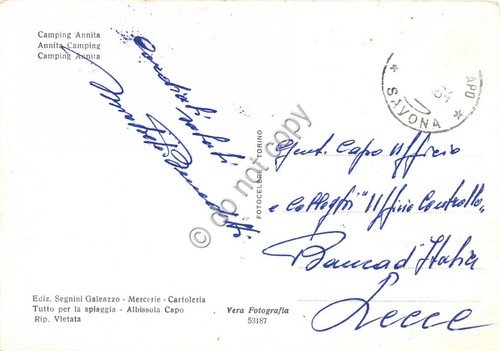 Camping Annita
Annita Camping
Camping Annita
Cordiali saluti
SAVONA
APO
FOTOCELERE - TORINO
© do not copy
Gent. Capo Ufficio
e Colleghi "Ufficio Controllo"
Banca d'Italia
Lecce
Ediz. Segnini Galeazzo - Mercerie - Cartoleria
Tutto per la spiaggia - Albissola Capo
Rip. Vietata
Vera Fotografia
53187